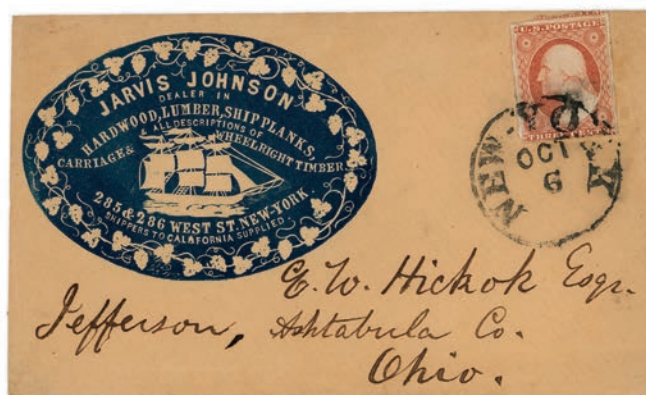 JARVIS JOHNSON
DEALER IN
HARDWOOD, LUMBER, SHIP PLANKS,
ALL DESCRIPTIONS OF
CARRIAGE & WHEELRIGHT TIMBER
285 & 286 WEST ST. NEW-YORK.
SHIPPERS TO CALAFORNIA SUPPLIED.
U.S. POSTAGE
THREE CENTS
NEW-YORK
OCT
6
E. W. Hickok Esqr.
Jefferson, Ashtabula Co.
Ohio.